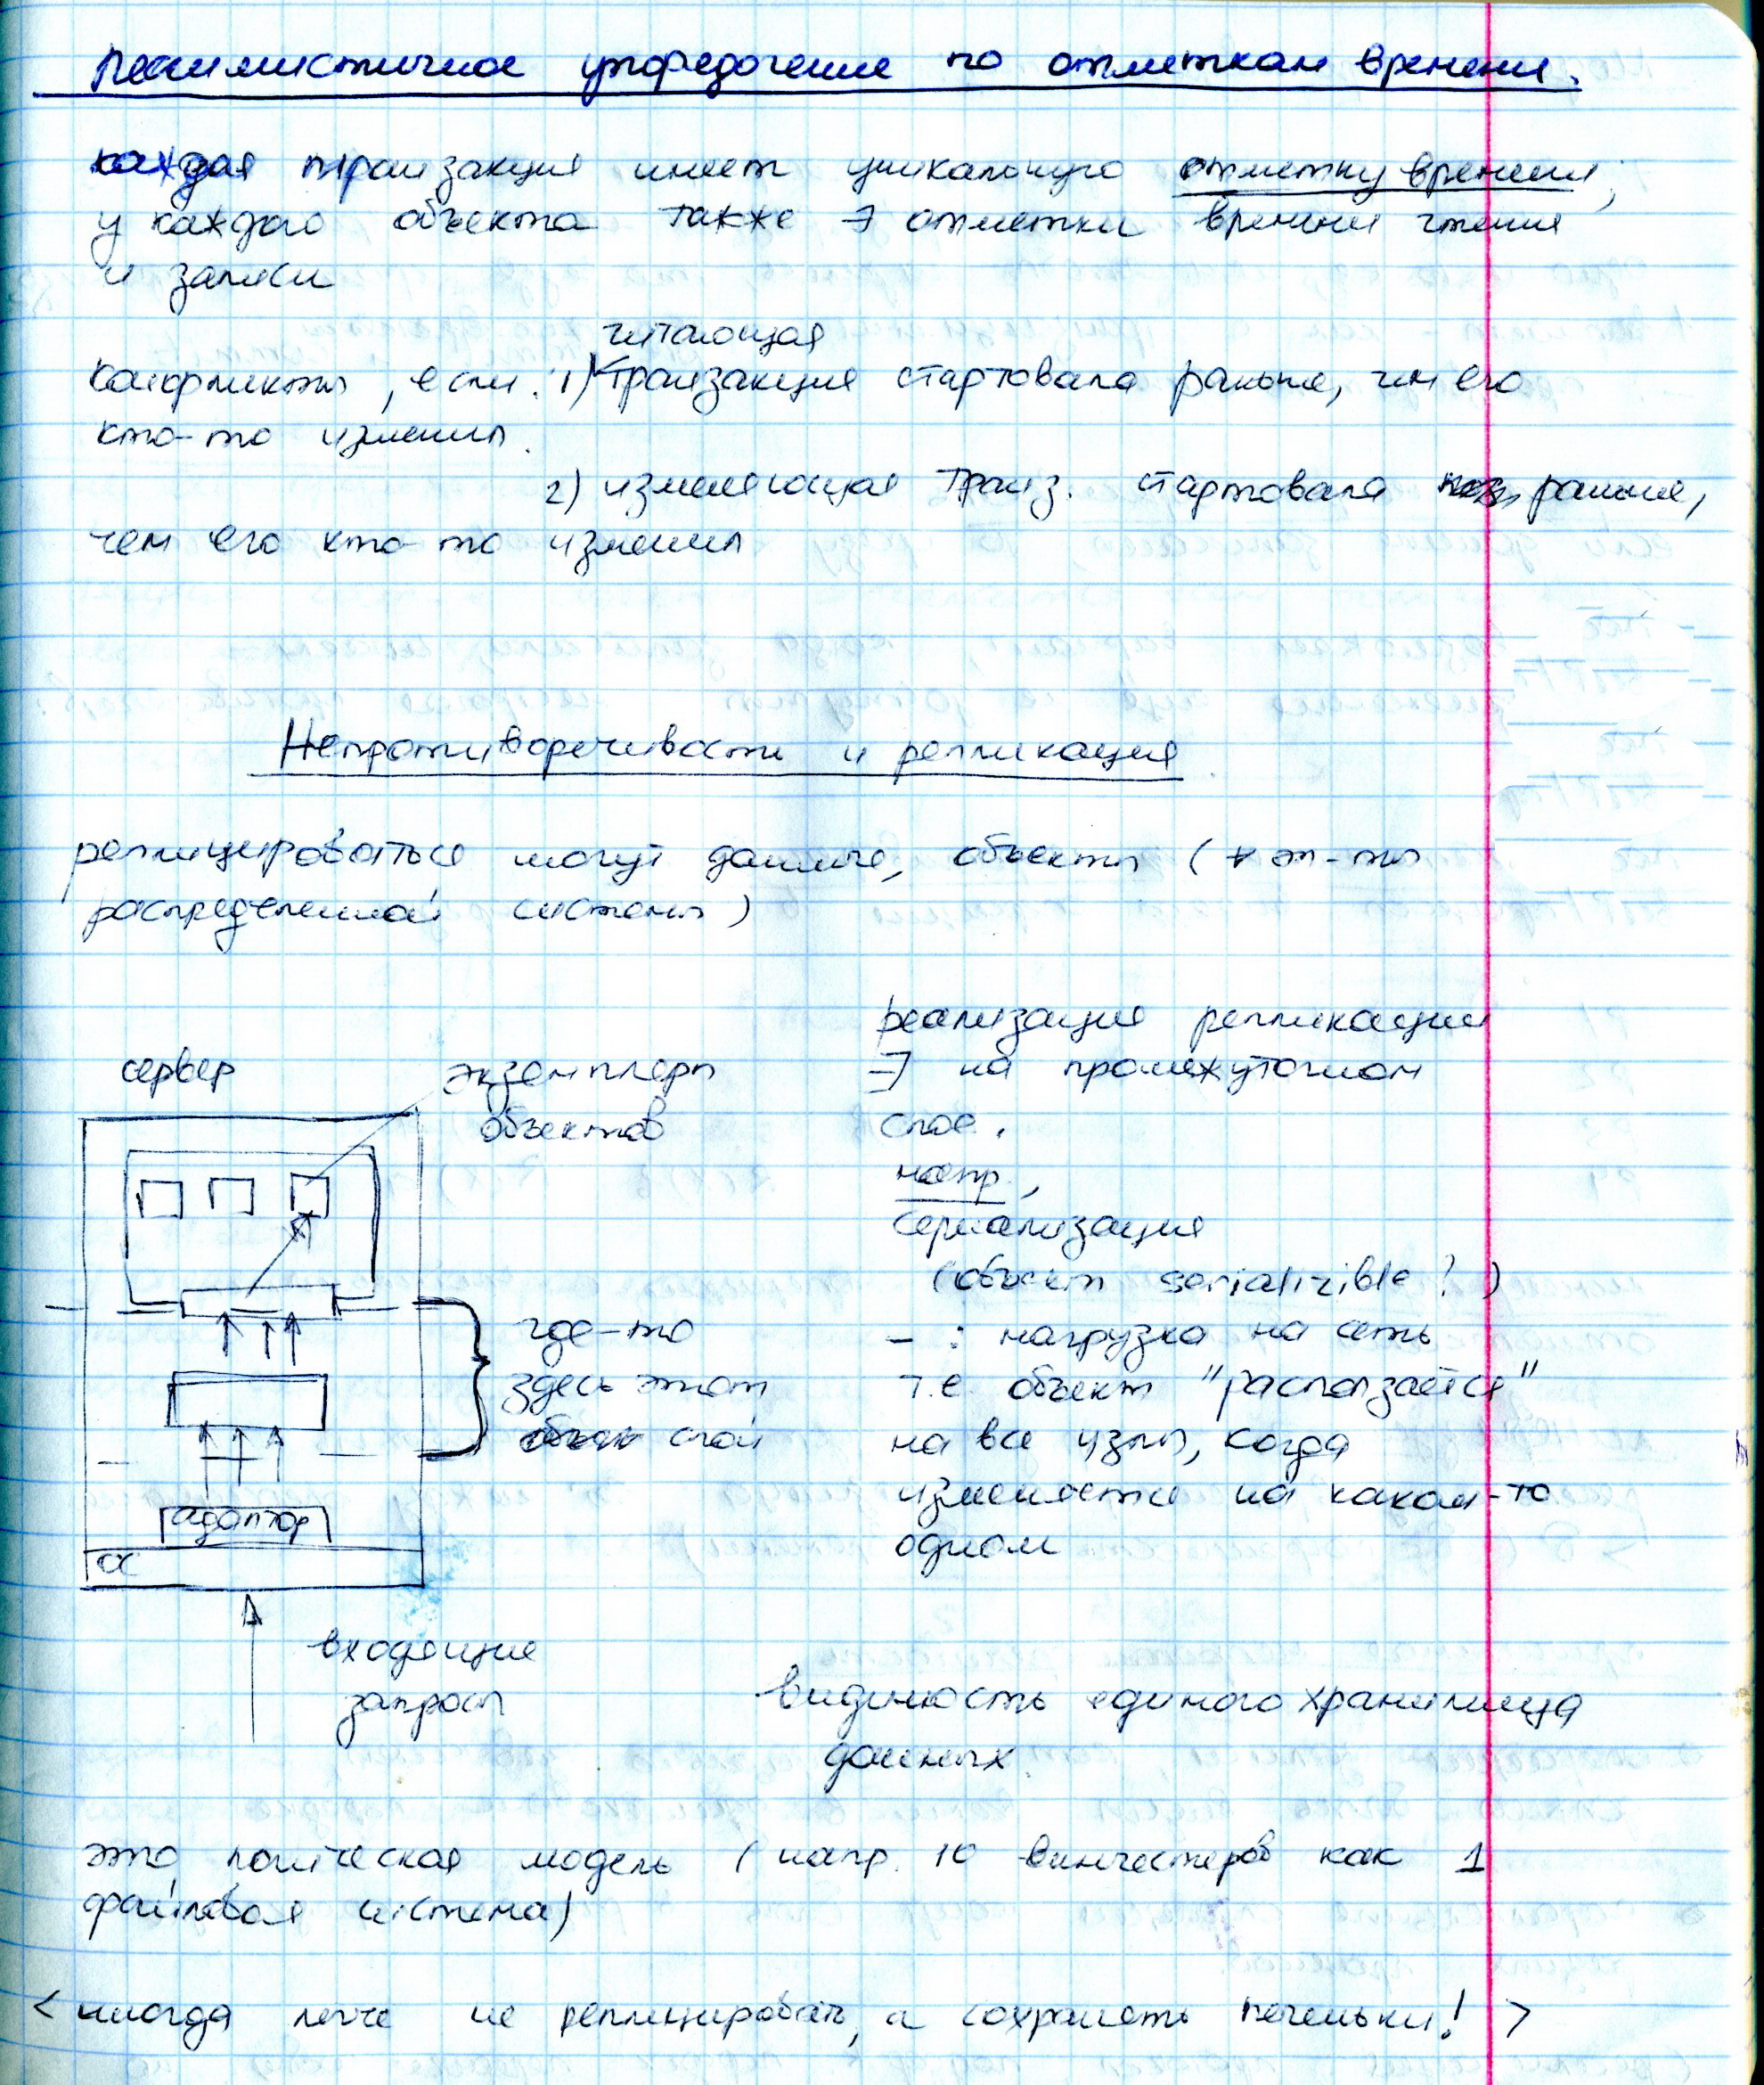 пессимистичное упорядочение по отметкам времени.
каждая транзакция имеет уникальную отметку времени,
у каждого объекта также ∃ отметки времени чтения
и записи
читающая
конфликты, если: 1) транзакция стартовала раньше, чем его
кто-то изменил.
2) изменяющая транз. стартовала раньше,
чем его кто-то изменил
Непротиворечивость и репликация
реплицироваться могут данные, объекты (∀ эл-ты
распределенной системы)
сервер
экземпляры
объектов
где-то
здесь этот
слой
адаптер
ОС
входящие
запросы
реализация репликации
∃ на промежуточном
слое.
напр.,
сериализация
(объект serializible?)
- : нагрузка на сеть
т.е. объект "расползается"
на все узлы, когда
изменяется на каком-то
одном
видимость единого хранилища
данных.
это логическая модель (напр. 10 винчестеров как 1
файловая система)
< иногда легче не реплицировать, а сохранять печеньки! >